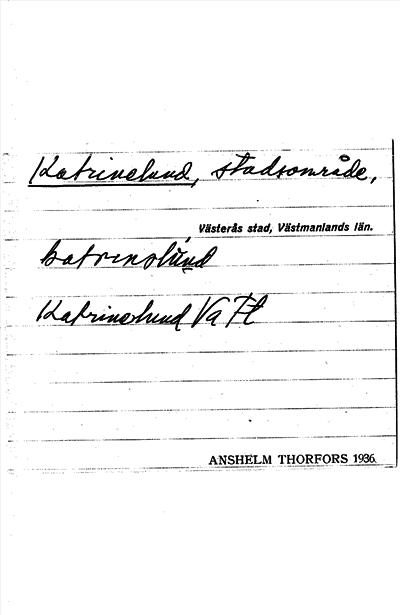 Katrinelund, stadsområde,
Västerås stad, Västmanlands län.
katrinslùnd
Katrinelund Va Fl
ANSHELM THORFORS 1936.